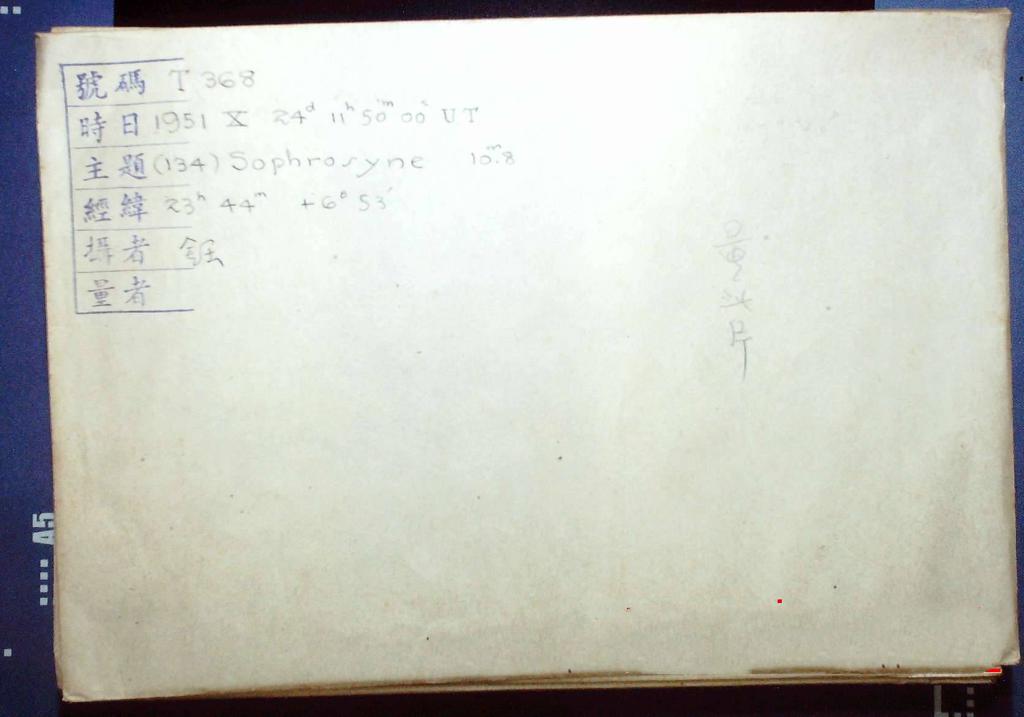 號碼 T 368
時日 1951 X 24ᵈ 11ʰ 50ᵐ 00ˢ UT
主題 (134) Sophrosyne 10ᵐ.8
經緯 23ʰ 44ᵐ +6° 53′
攝者
量者
片
A5